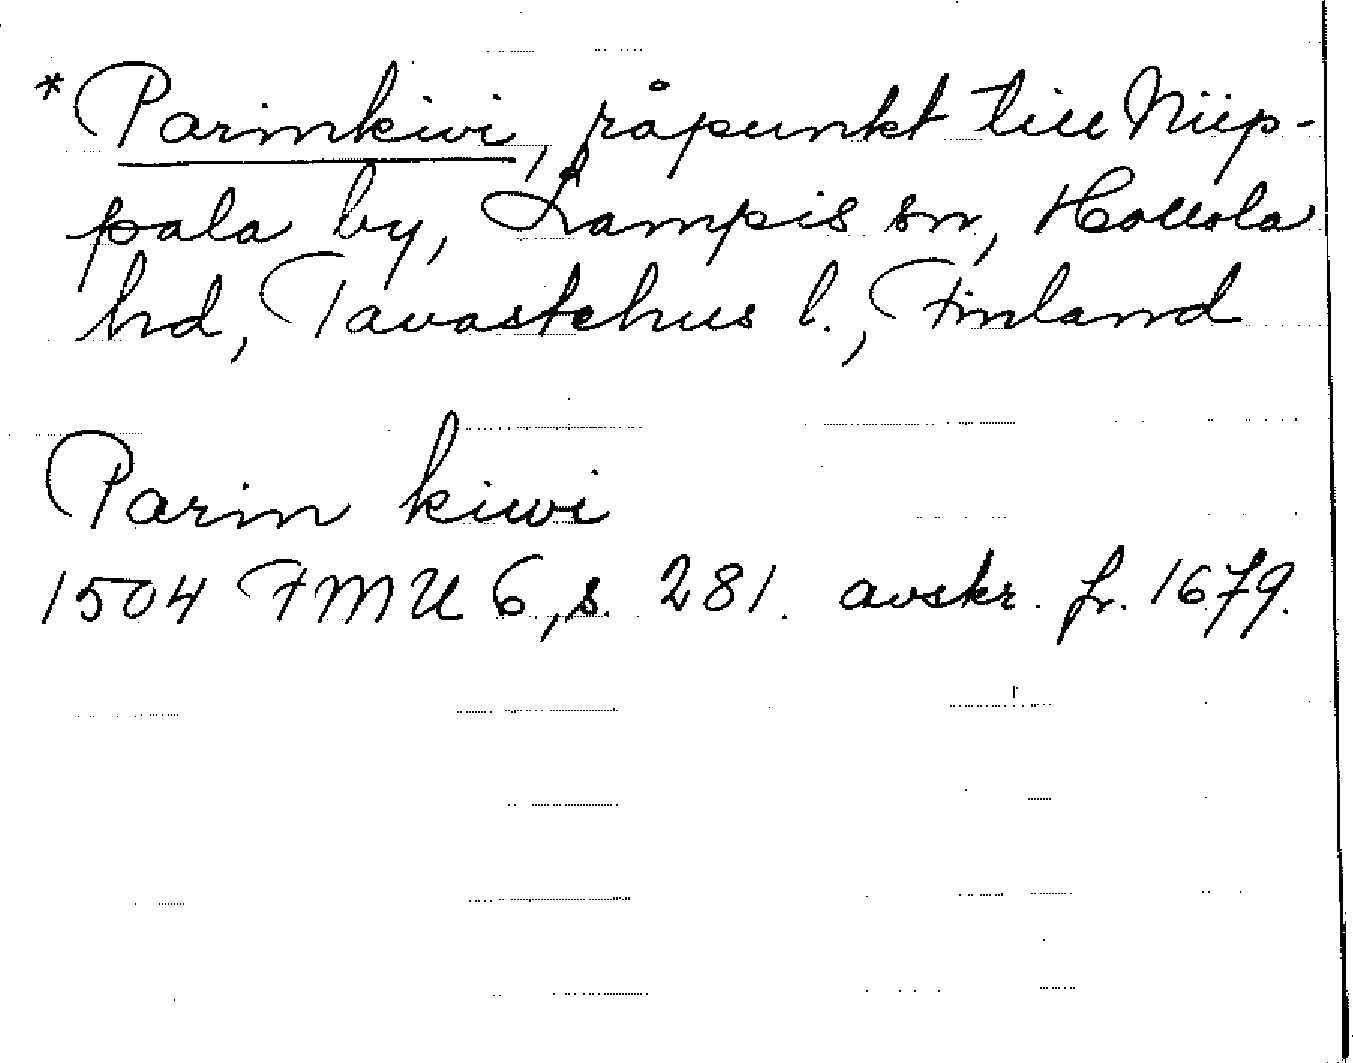 * Parinkivi, råpunkt till Niip-
pala by, Lampis sn, Hollola
hd, Tavastehus l., Finland
Parin kiwi
1504 FMU 6, s. 281. avskr. fr. 1679.